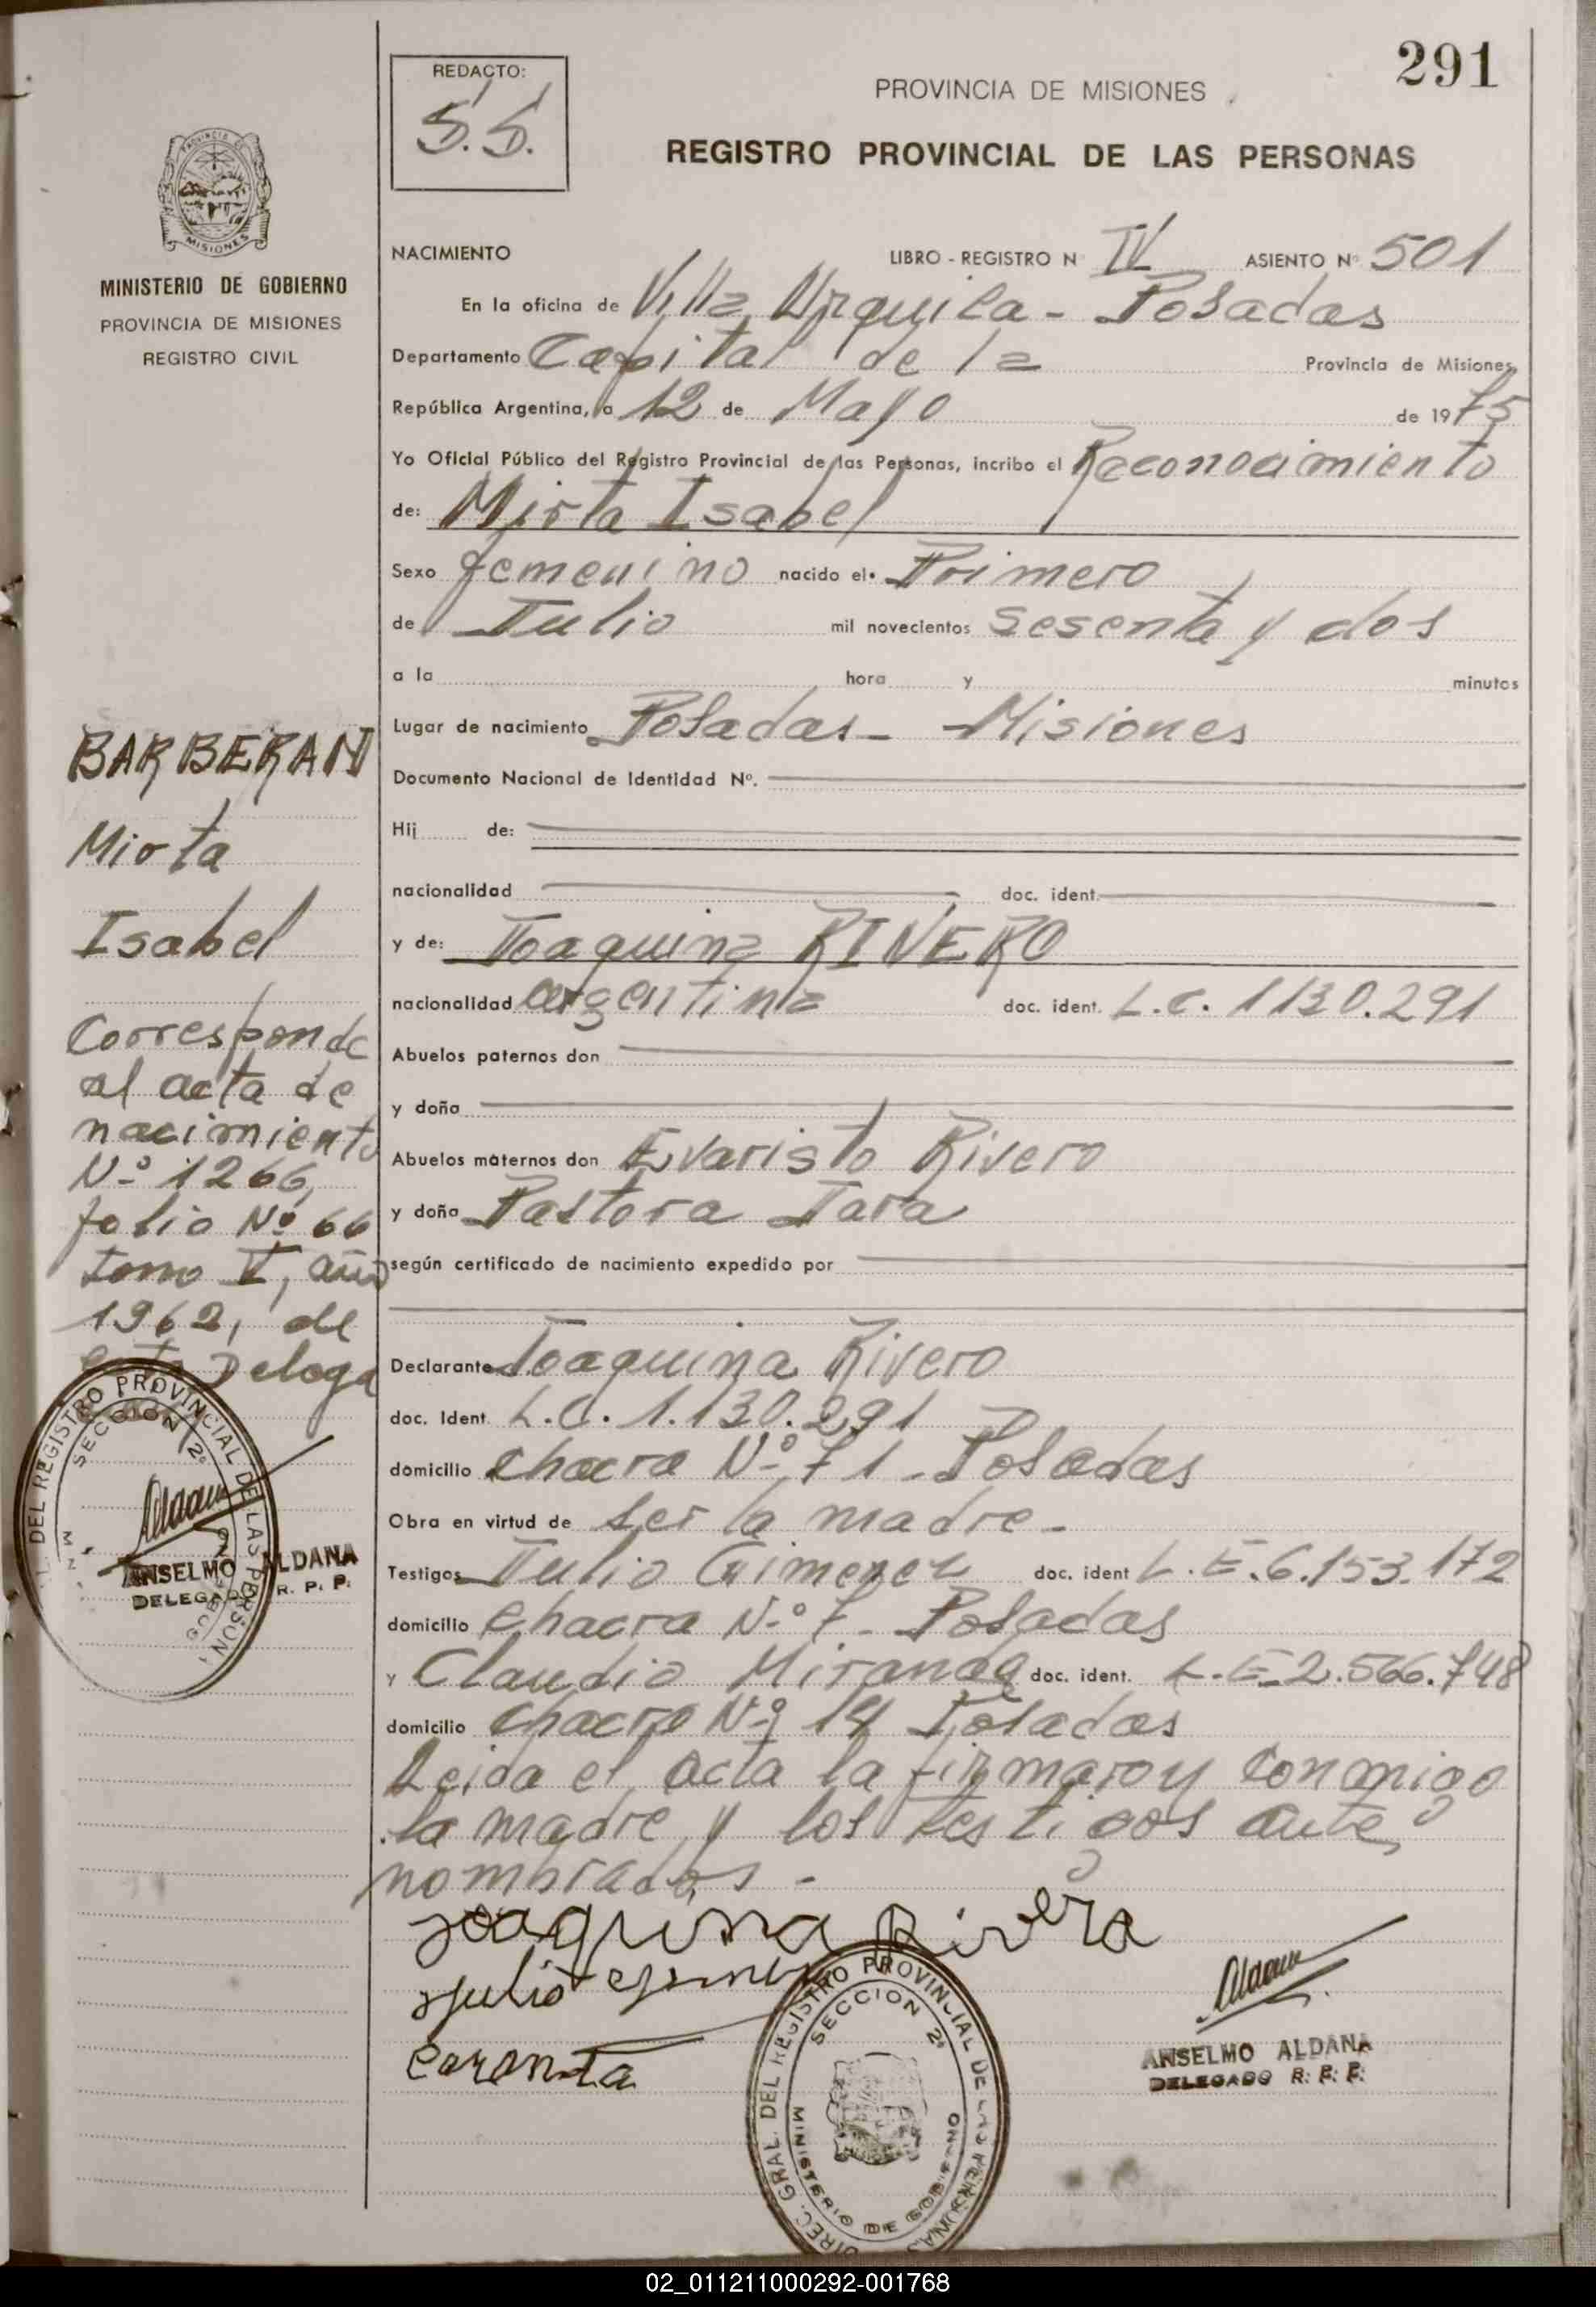 291
REDACTO:
S.S.
PROVINCIA DE MISIONES
REGISTRO PROVINCIAL DE LAS PERSONAS
PROVINCIA
MISIONES
MINISTERIO DE GOBIERNO
PROVINCIA DE MISIONES
REGISTRO CIVIL
NACIMIENTO LIBRO - REGISTRO N IV ASIENTO Nº 501
En la oficina de Villa Urquiza - Posadas
Departamento Capital de la Provincia de Misiones,
República Argentina, a 12 de Mayo de 1975
Yo Oficial Público del Registro Provincial de las Personas, incribo el Reconocimiento
de: Mirta Isabel
Sexo femenino nacido el Primero
de Julio mil novecientos sesenta y dos
a la hora y minutos
Lugar de nacimiento Posadas - Misiones
Documento Nacional de Identidad Nº.
Hij de:
nacionalidad doc. ident.
y de: Joaquina RIVERO
nacionalidad argentina doc. ident. L.C. 1130.291
Abuelos paternos don
y doña
Abuelos maternos don Evaristo Rivero
y doña Pastora Jara
según certificado de nacimiento expedido por
Declarante Joaquina Rivero
doc. Ident. L.C. 1.130.291
domicilio chacra Nº 71 - Posadas
Obra en virtud de ser la madre -
Testigos Julio Gimenez doc. ident L.E. 6.153.172
domicilio Chacra Nº 7 - Posadas
y Claudio Miranda doc. ident. L.E. 2.566.748
domicilio chacra Nº 14 Posadas
Leida el acta la firmaron conmigo
la madre y los testigos ante
nombrados -
Joaquina Rivera
Julio
ANSELMO ALDANA
DELEGADO R. P. P.
DIREC. GRAL. DEL REGISTRO PROVINCIAL DE LAS PERSONAS
SECCION 2º
MINISTERIO DE GOBIERNO
BARBERAN
Mirta
Isabel
Corresponde
al acta de
nacimiento
Nº 1266,
folio Nº 66
tomo V, año
1962, de
esta Delega
DEL REGISTRO PROVINCIAL DE LAS PERSON
SECCION 2º
ANSELMO ALDANA
DELEGADO R. P. P.
02_011211000292-001768